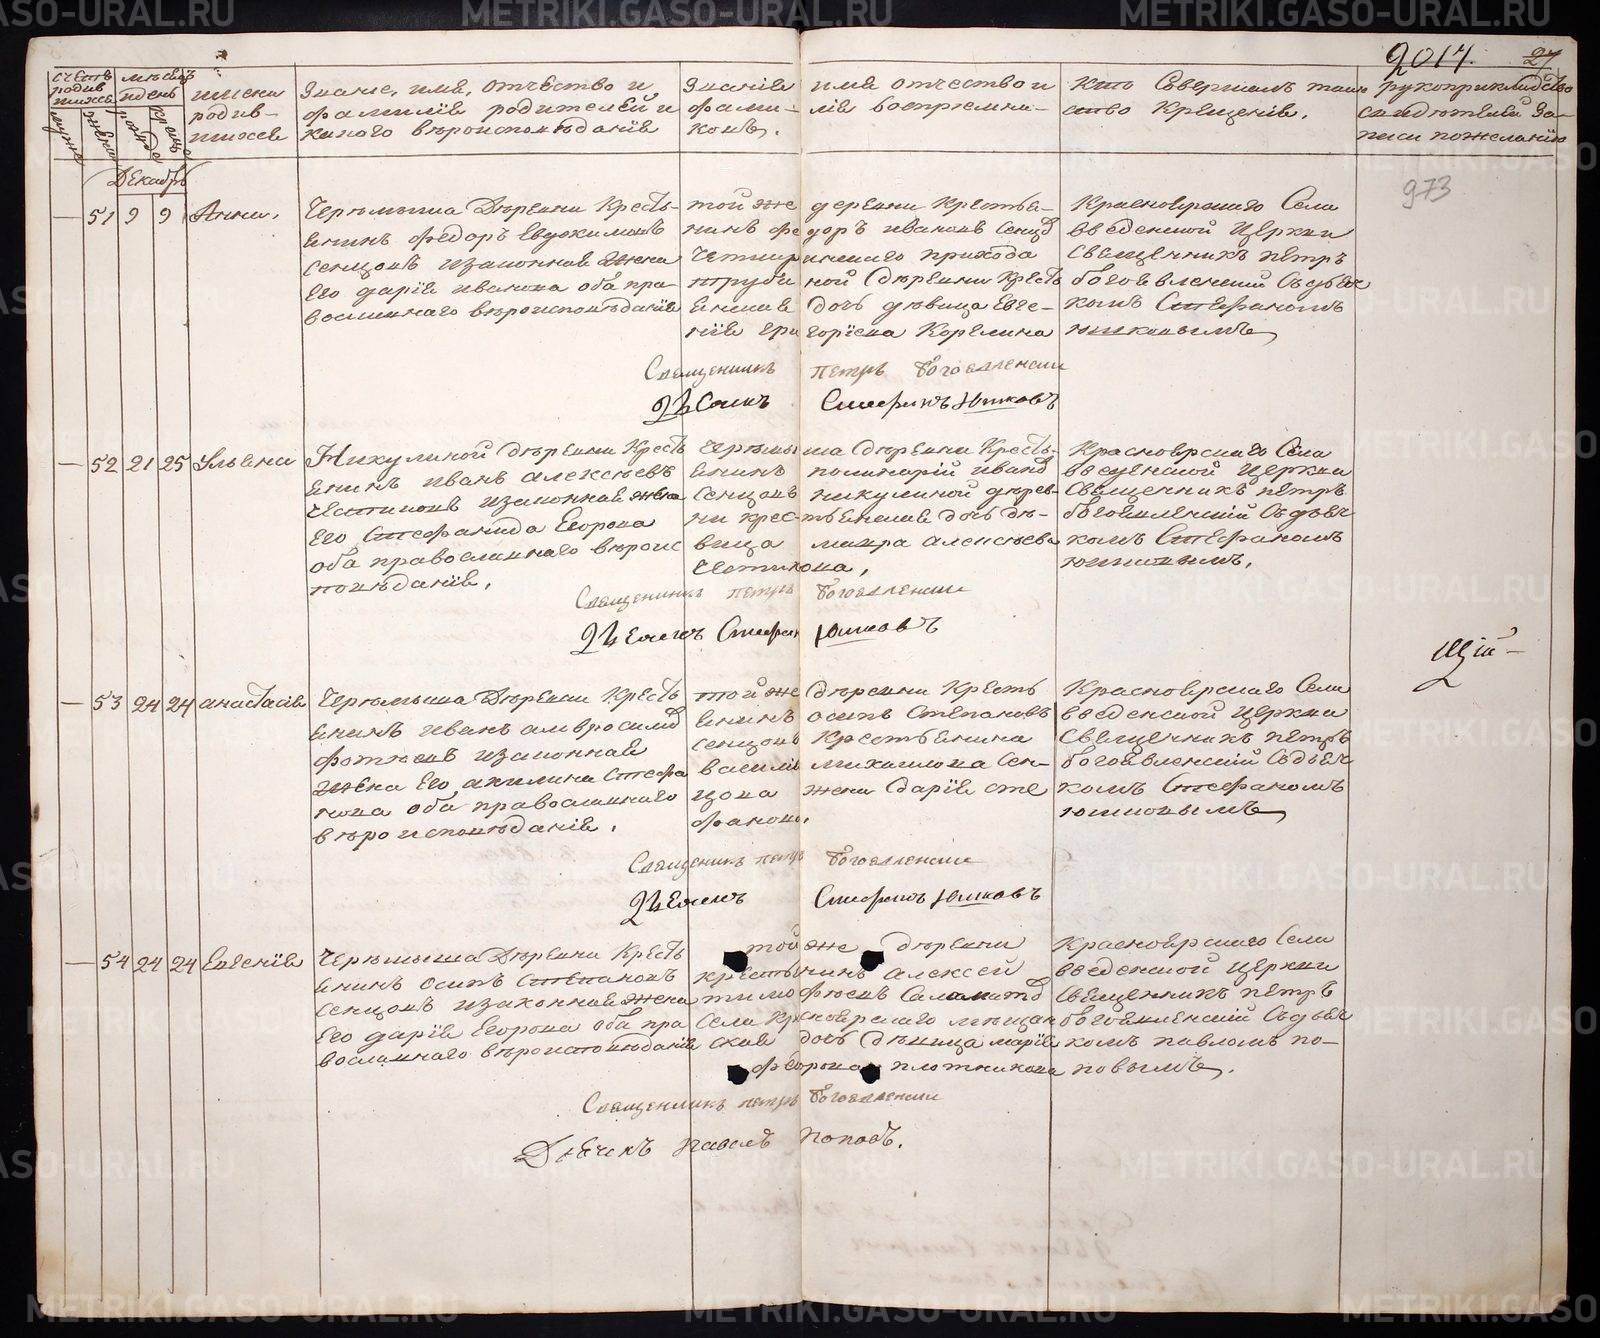 2014. 27
973
Счетъ родив-шихся
мужс женс
мѣсяцъ и день
рожде крещ
имена родив-шихся
Звание, имя, отчество и фамилия родителей и какого вѣроисповѣдания
Звание имя отчество и фамилия восприемни-ковъ.
Кто Совершалъ таинство Крещения.
рукоприкладство свидѣтелей за-писи по желанию
Декабрь
— 51 9 9 Анна.
Черемыша Деревни Кресть-
янинъ Федоръ Евдокимовъ
Сенцовъ и законная жена
Его дария иванова оба пра-
вославнаго вѣроисповѣдания
той же деревни Крестья-
нинъ федоръ ивановъ Сенцов
прихода
ной деревни Кресть
янская дочь дѣвица Евге-
ния Григорьева Корелина
Красноярскаго Села
введенской Церкви
Священникъ петръ
богоявленский Съ дьяч
комъ Стефаномъ
юшковымъ
Священникъ петръ Богоявленский
Дьячекъ Стефанъ Юшковъ
— 52 21 25 Ульяна
Никулиной деревни Кресть
янинъ иванъ алексѣевъ
и законная жена
Его Стефанида Егорова
оба православнаго вѣроис
повѣдания.
Черемыша деревни Кресть-
янинъ иванов
Сенцовъ никулиной дерев-
ни крестьянская дочь дѣ-
вица мавра алексѣева
Красноярскаго Села
введенской Церкви
Священникъ петръ
богоявленский Съ дьяч
комъ Стефаномъ
юшковымъ.
Священникъ петръ Богоявленский
Дьячекъ Стефанъ Юшковъ
— 53 24 24 анастасия
Черемыша Деревни Кресть
янинъ иванъ амвросимов
фотѣевъ и законная
жена Его акилина Стефа
нова оба православнаго
вѣроисповѣдания.
той же деревни Кресть
янинъ осипъ Степановъ
Сенцовъ Крестьянина
василия михаилова Сен-
цова жена дария сте
фанова.
Красноярскаго Села
введенской Церкви
Священникъ петръ
богоявленский Съ дьяч
комъ Стефаномъ
юшковымъ
Священникъ петръ Богоявленский
Дьячекъ Стефанъ Юшковъ
— 54 24 24 Евгения
Черемыша Деревни Кресть
янинъ осипъ Степановъ
Сенцовъ и законная жена
Его дария Егорова оба пра
вославнаго вѣроисповѣдания
той же деревни
крестьянинъ алексей
тимофѣевъ
Села Красноярскаго мѣщан
ская дочь дѣвица мария
федорова плотникова
Красноярскаго Села
введенской Церкви
Священникъ петръ
богоявленский Съ дьяч
комъ павломъ по-
повымъ.
Священникъ петръ Богоявленский
Дьячекъ Павелъ Поповъ.
METRIKI.GASO-URAL.RU